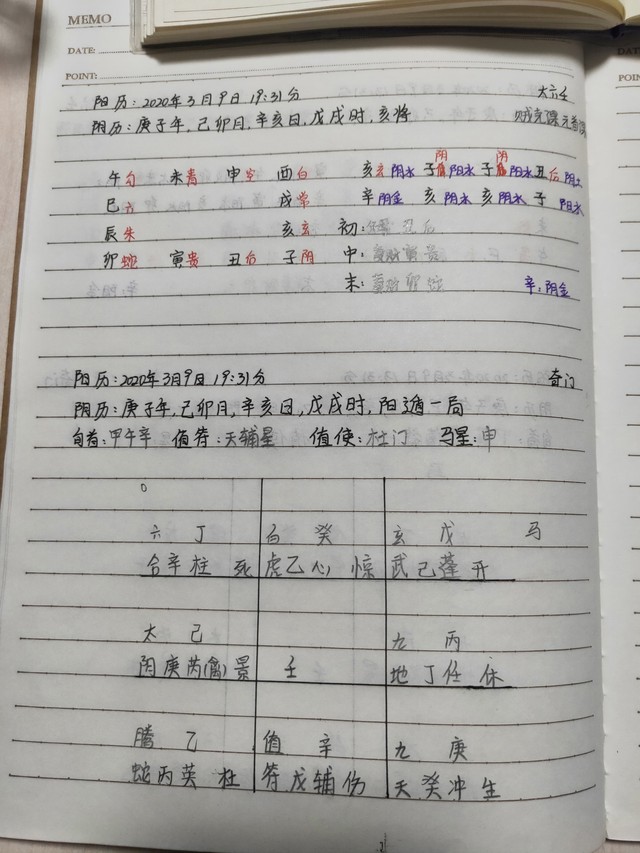 MEMO
DATE:
POINT:
POIN
阳历:2020年3月9日19:31分 大六壬
阴历:庚子年,己卯月,辛亥日,戊戌时,亥将 贼克课 元首课
午勾 未贵 申空 酉白 亥玄阴水 子阴阳水 子阴阳水 丑后阴土
巳六 戌常 辛阴金 亥阴水 亥阴水 子阳水
辰朱 亥玄 初: 丑后
卯蛇 寅贵 丑后 子阴 中: 寅贵
末: 卯蛇 辛:阴金
阳历:2020年3月9日19:31分 奇门
阴历:庚子年,己卯月,辛亥日,戊戌时,阳遁一局
旬首:甲午辛 值符:天辅星 值使:杜门 马星:申
六丁 白癸 玄戊 马
合辛柱死 虎乙心惊 武己蓬开
太己 九丙
阴庚芮(禽)景 壬 地丁任休
腾乙 值辛 九庚
蛇丙英杜 符戊辅伤 天癸冲生